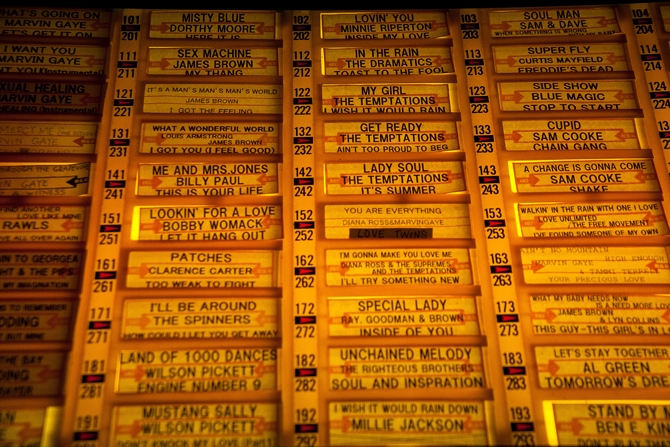 WHAT'S GOING ON
MARVIN GAYE
LET'S GET IT ON
I WANT YOU
MARVIN GAYE
(Instrumental)
SEXUAL HEALING
MARVIN GAYE
(Instrumental)
GAYE
LOVE LIKE MINE
RAWLS
ALL OVER AGAIN
TRAIN TO GEORGIA
& THE PIPS
IMAGINATION
TO REMEMBER
THE BAY
101
201
111
211
121
221
131
231
141
241
151
251
161
261
171
271
181
281
191
291
MISTY BLUE
DORTHY MOORE
HERE IT IS
SEX MACHINE
JAMES BROWN
MY THANG
IT'S A MAN'S MAN'S MAN'S WORLD
JAMES BROWN
I GOT THE FEELING
WHAT A WONDERFUL WORLD
LOUIS ARMSTRONG
JAMES BROWN
I GOT YOU (I FEEL GOOD)
ME AND MRS. JONES
BILLY PAUL
THIS IS YOUR LIFE
LOOKIN' FOR A LOVE
BOBBY WOMACK
LET IT HANG OUT
PATCHES
CLARENCE CARTER
TOO WEAK TO FIGHT
I'LL BE AROUND
THE SPINNERS
HOW COULD I LET YOU GET AWAY
LAND OF 1000 DANCES
WILSON PICKETT
ENGINE NUMBER 9
MUSTANG SALLY
WILSON PICKETT
DON'T KNOCK MY LOVE (Part1)
102
202
112
212
122
222
132
232
142
242
152
252
162
262
172
272
182
282
192
292
LOVIN' YOU
MINNIE RIPERTON
INSIDE MY LOVE
IN THE RAIN
THE DRAMATICS
TOAST TO THE FOOL
MY GIRL
THE TEMPTATIONS
I WISH IT WOULD RAIN
GET READY
THE TEMPTATIONS
AIN'T TOO PROUD TO BEG
LADY SOUL
THE TEMPTATIONS
IT'S SUMMER
YOU ARE EVERYTHING
DIANA ROSS & MARVIN GAYE
LOVE TWINS
I'M GONNA MAKE YOU LOVE ME
DIANA ROSS & THE SUPREMES
AND THE TEMPTATIONS
I'LL TRY SOMETHING NEW
SPECIAL LADY
RAY, GOODMAN & BROWN
INSIDE OF YOU
UNCHAINED MELODY
THE RIGHTEOUS BROTHERS
SOUL AND INSPRATION
I WISH IT WOULD RAIN DOWN
MILLIE JACKSON
103
203
113
213
123
223
133
233
143
243
153
253
163
263
173
273
183
283
193
293
SOUL MAN
SAM & DAVE
WHEN SOMETHING IS WRONG
SUPER FLY
CURTIS MAYFIELD
FREDDIE'S DEAD
SIDE SHOW
BLUE MAGIC
STOP TO START
CUPID
SAM COOKE
CHAIN GANG
A CHANGE IS GONNA COME
SAM COOKE
SHAKE
WALKIN IN THE RAIN WITH ONE I LOVE
LOVE UNLIMITED
/THE FREE MOVEMENT
I'VE FOUND SOMEONE OF MY OWN
AIN'T NO MOUNTAIN
HIGH ENOUGH
MARVIN GAYE
& TAMMI TERRELL
YOUR PRECIOUS LOVE
WHAT MY BABY NEEDS NOW
IS A NEED MORE LOVE
JAMES BROWN
& LYN COLLINS
THIS GUY-THIS GIRL'S IN LOVE
LET'S STAY TOGETHER
AL GREEN
TOMORROW'S
STAND BY
BEN E. KING
104
204
114
214
124
224
134